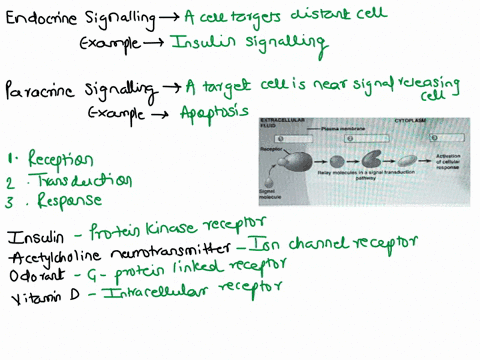 Endocrine Signalling → A cell targets distant cell
Example → Insulin signalling
Paracrine Signalling → A target cell is near signal releasing cell
Example → Apoptosis
EXTRACELLULAR FLUID
CYTOPLASM
Plasma membrane
1. Reception
2. Transduction
3. Response
Receptor
Activation of cellular response
Relay molecules in a signal transduction pathway
Signal molecule
Insulin - Protein kinase receptor
Acetylcholine neurotransmitter - Ion channel receptor
Odorant - G-protein linked receptor
Vitamin D - Intracellular receptor